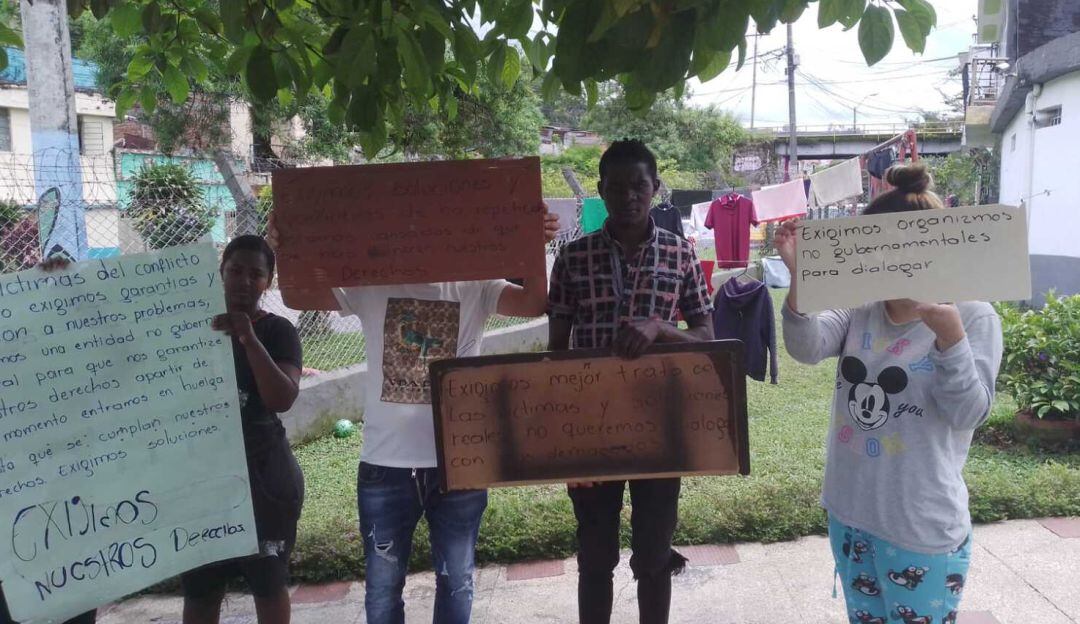 ctimas del conflicto
o exigimos garantías y
ion a nuestros problemas,
mos una entidad no gubern
tal para que nos garantize
stros derechos apartir de
momento entramos en huelga
ta que se cumplan nuestros
rechos. Exigimos soluciones.
EXIJIMOS
NUESTROS Derechos
Exigimos soluciones y
de no repetición
cansados de que
nuestros
Derechos
Exigimos mejor trato con
Las víctimas y soluciones
reales no queremos dialoga
con
Exigimos organizmos
no gubernamentales
para dialogar
you